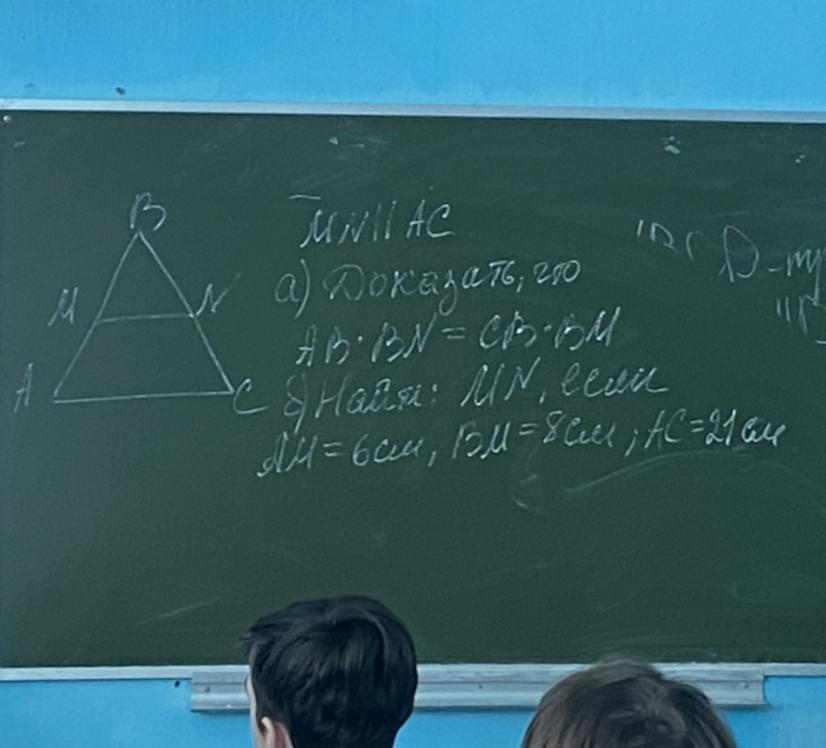 B
M N
A C
MN || AC
а) Доказать, что
AB · BN = CB · BM
б) Найти: MN, если
AM = 6 см, BM = 8 см; AC = 21 см